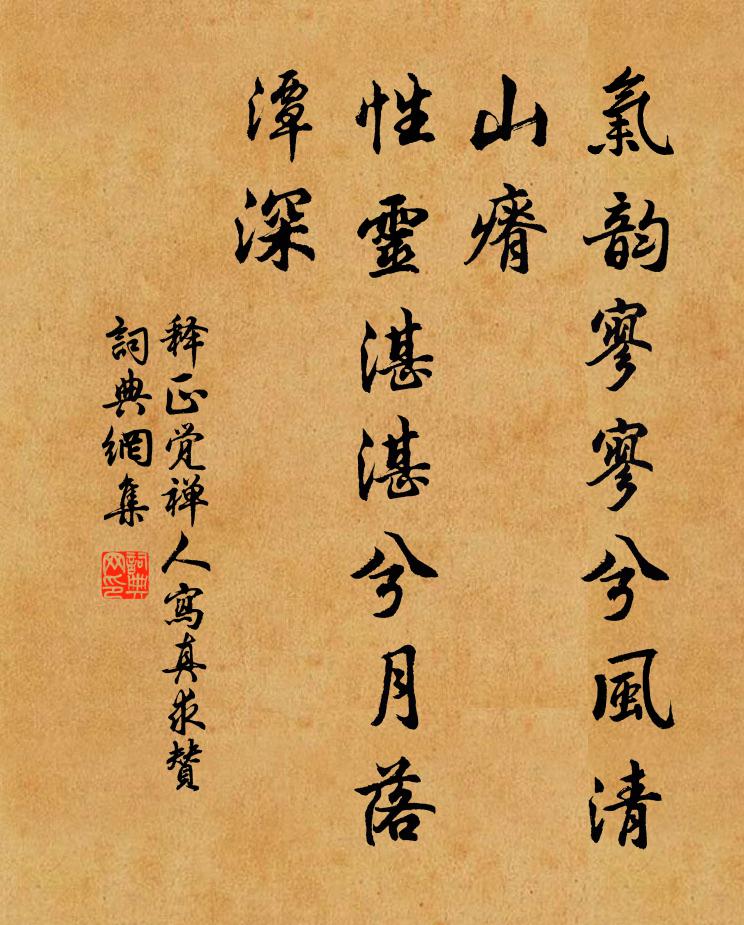 氣韵寥寥兮風清
山瘠
性靈湛湛兮月落
潭深
释正觉禅人寫真求賛
詞典網集
詞典網印